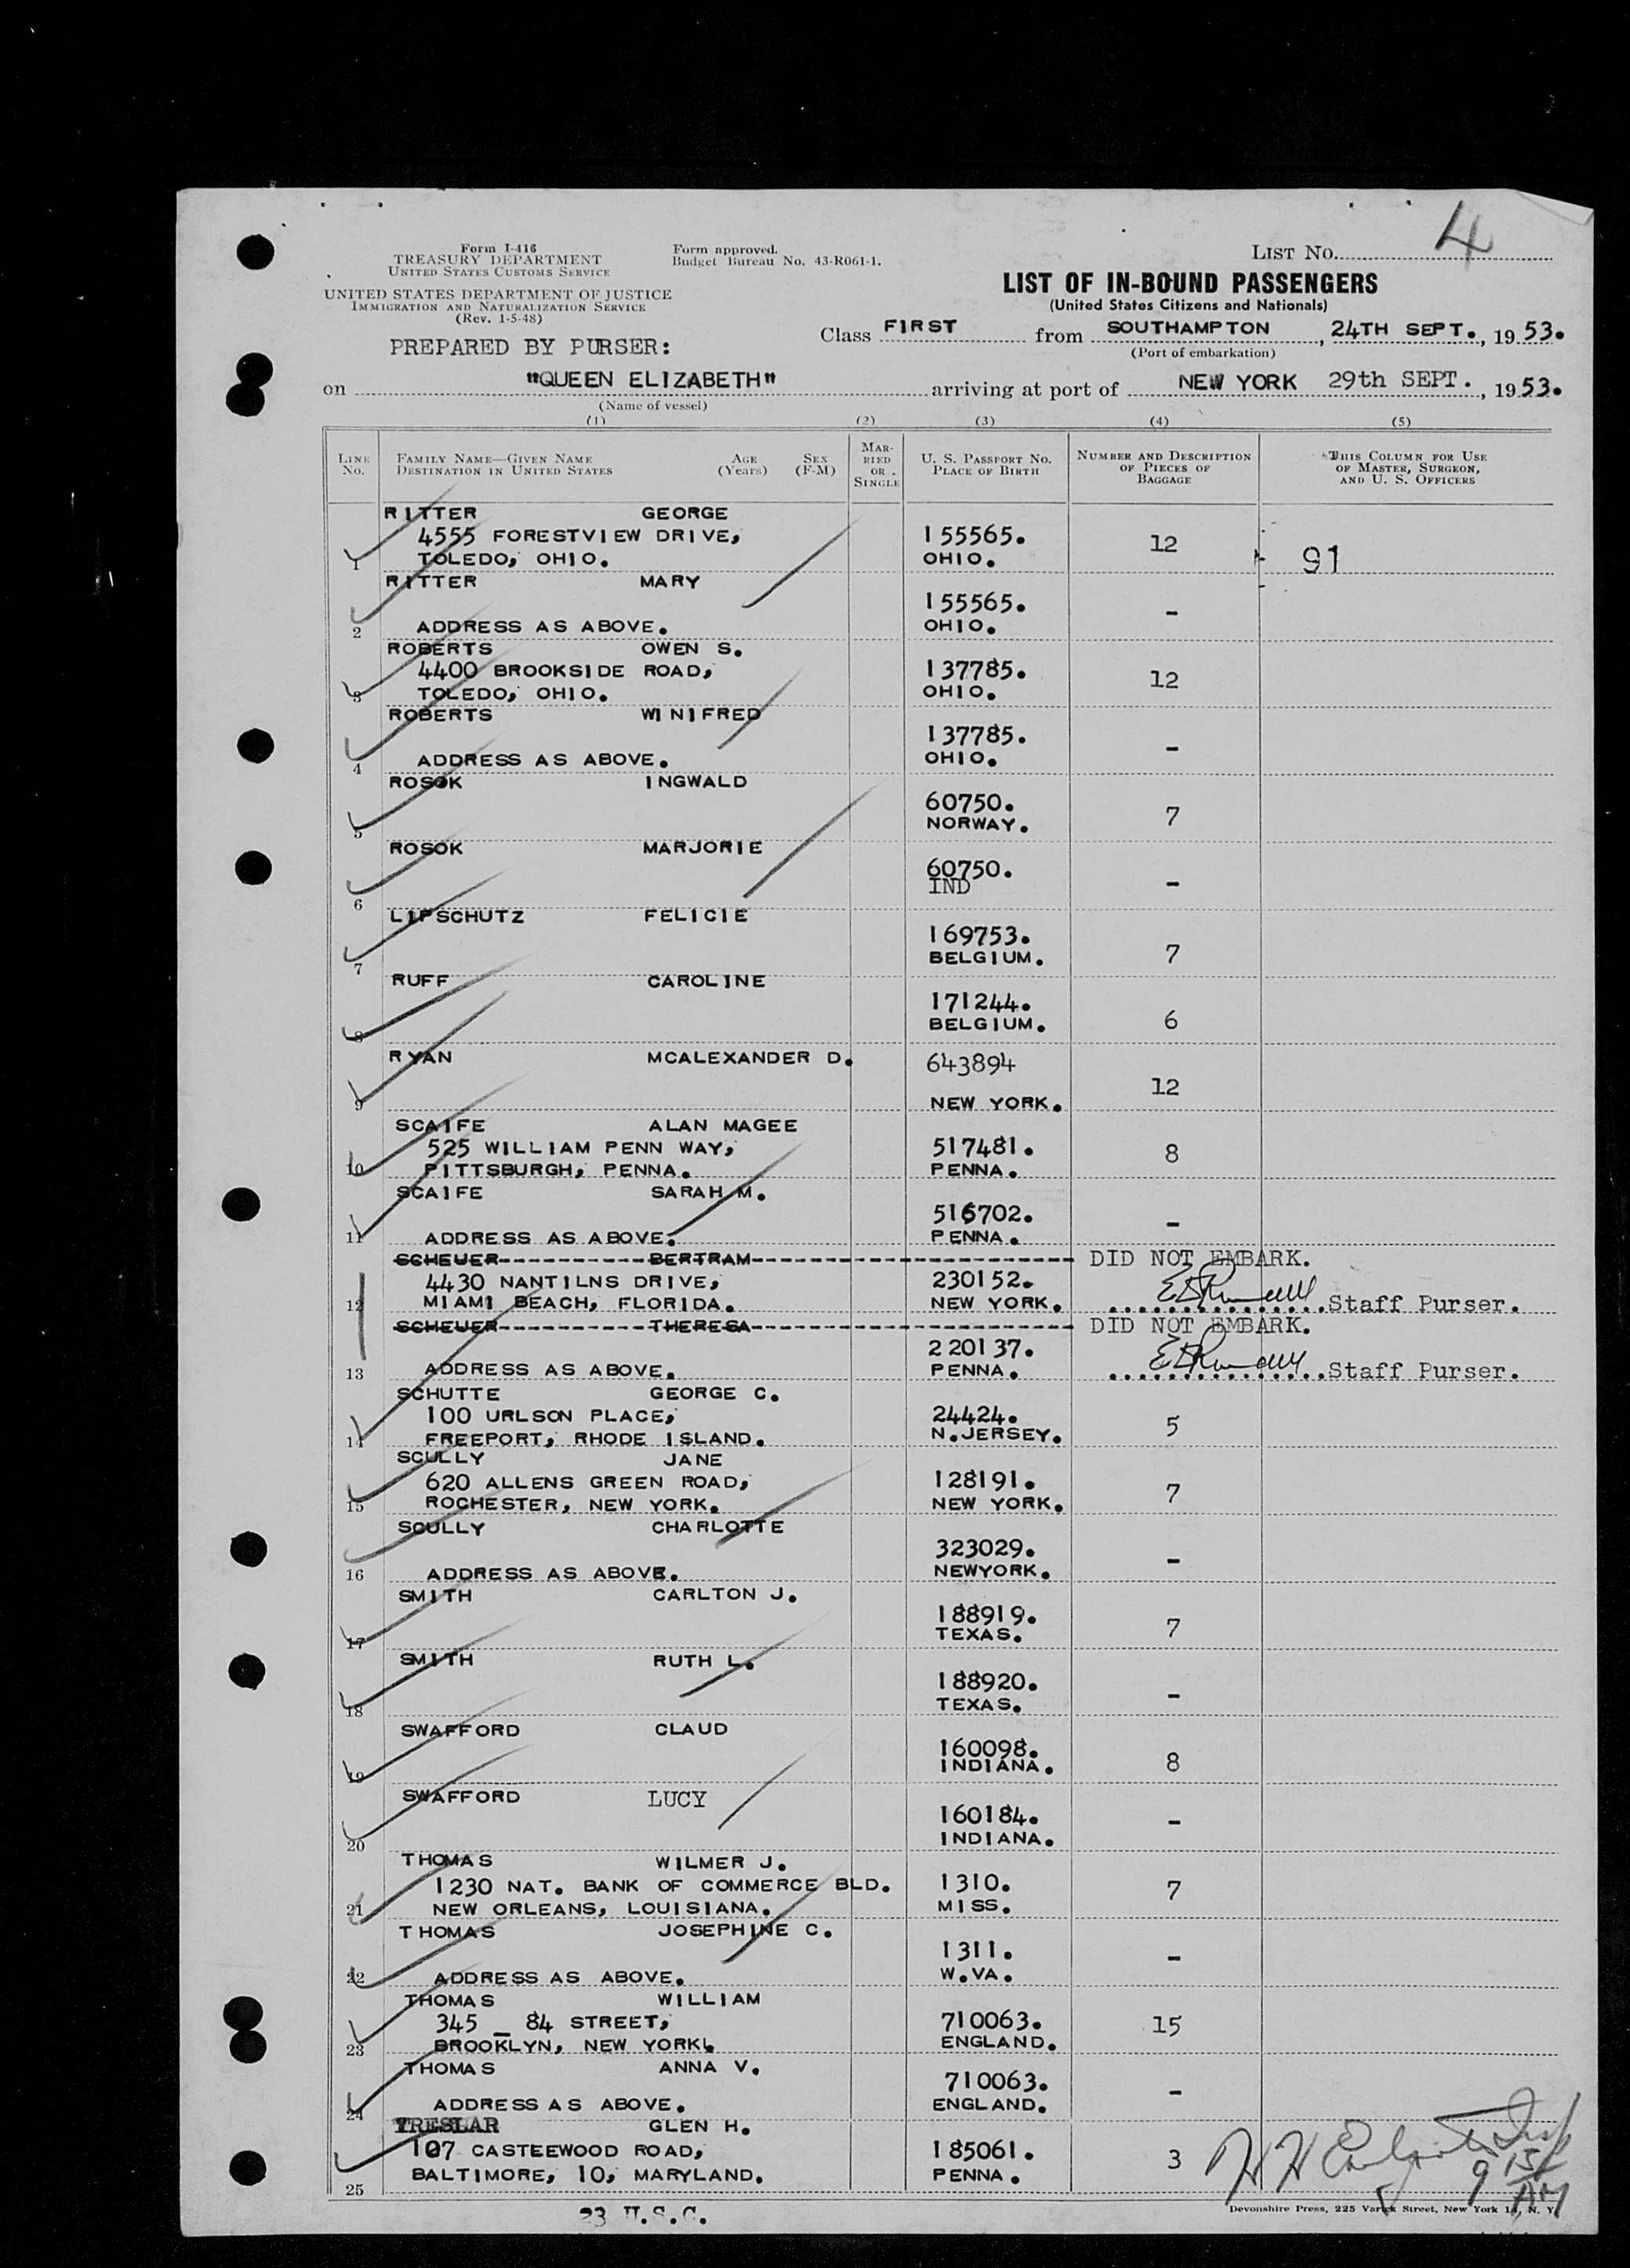 4
Form I-416
TREASURY DEPARTMENT
UNITED STATES CUSTOMS SERVICE
Form approved.
Budget Bureau No. 43-R061-1.
LIST NO.
UNITED STATES DEPARTMENT OF JUSTICE
IMMIGRATION AND NATURALIZATION SERVICE
(Rev. 1-5-48)
LIST OF IN-BOUND PASSENGERS
(United States Citizens and Nationals)
Class FIRST from SOUTHAMPTON, 24TH SEPT., 1953.
(Port of embarkation)
PREPARED BY PURSER:
on "QUEEN ELIZABETH" arriving at port of NEW YORK 29th SEPT., 1953.
(Name of vessel)
(1) (2) (3) (4) (5)
LINE NO.
FAMILY NAME—GIVEN NAME
DESTINATION IN UNITED STATES
AGE (Years)
SEX (F-M)
MARRIED OR SINGLE
U. S. PASSPORT NO.
PLACE OF BIRTH
NUMBER AND DESCRIPTION OF PIECES OF BAGGAGE
THIS COLUMN FOR USE OF MASTER, SURGEON, AND U. S. OFFICERS
RITTER GEORGE
4555 FORESTVIEW DRIVE, 155565. 12
1 TOLEDO, OHIO. OHIO. 91
RITTER MARY
155565. -
2 ADDRESS AS ABOVE. OHIO.
ROBERTS OWEN S.
4400 BROOKSIDE ROAD, 137785. 12
3 TOLEDO, OHIO. OHIO.
ROBERTS WINIFRED
137785. -
4 ADDRESS AS ABOVE. OHIO.
ROSOK INGWALD
60750. 7
5 NORWAY.
ROSOK MARJORIE
60750. -
IND
6
LIPSCHUTZ FELICIE
169753.
7 BELGIUM. 7
RUFF CAROLINE
171244.
8 BELGIUM. 6
RYAN MCALEXANDER D. 643894
12
9 NEW YORK.
SCAIFE ALAN MAGEE
525 WILLIAM PENN WAY, 517481. 8
10 PITTSBURGH, PENNA. PENNA.
SCAIFE SARAH M.
516702. -
11 ADDRESS AS ABOVE. PENNA.
SCHEUER BERTRAM DID NOT EMBARK.
4430 NANTILNS DRIVE, 230152.
12 MIAMI BEACH, FLORIDA. NEW YORK. Staff Purser.
SCHEUER THERESA DID NOT EMBARK.
220137.
13 ADDRESS AS ABOVE. PENNA. Staff Purser.
SCHUTTE GEORGE C.
100 URLSON PLACE, 24424. 5
14 FREEPORT, RHODE ISLAND. N.JERSEY.
SCULLY JANE
620 ALLENS GREEN ROAD, 128191. 7
15 ROCHESTER, NEW YORK. NEW YORK.
SCULLY CHARLOTTE
323029. -
16 ADDRESS AS ABOVE. NEWYORK.
SMITH CARLTON J.
188919. 7
17 TEXAS.
SMITH RUTH L.
188920. -
18 TEXAS.
SWAFFORD CLAUD
160098.
19 INDIANA. 8
SWAFFORD LUCY
160184. -
20 INDIANA.
THOMAS WILMER J.
1230 NAT. BANK OF COMMERCE BLD. 1310. 7
21 NEW ORLEANS, LOUISIANA. MISS.
THOMAS JOSEPHINE C.
1311. -
22 ADDRESS AS ABOVE. W.VA.
THOMAS WILLIAM
345 _ 84 STREET, 710063. 15
23 BROOKLYN, NEW YORK. ENGLAND.
THOMAS ANNA V.
710063. -
24 ADDRESS AS ABOVE. ENGLAND.
TRESLAR GLEN H.
107 CASTEEWOOD ROAD, 185061. 3
25 BALTIMORE, 10, MARYLAND. PENNA.
9 15 AM
23 U.S.C.
Devonshire Press, 225 Varick Street, New York 14, N. Y.